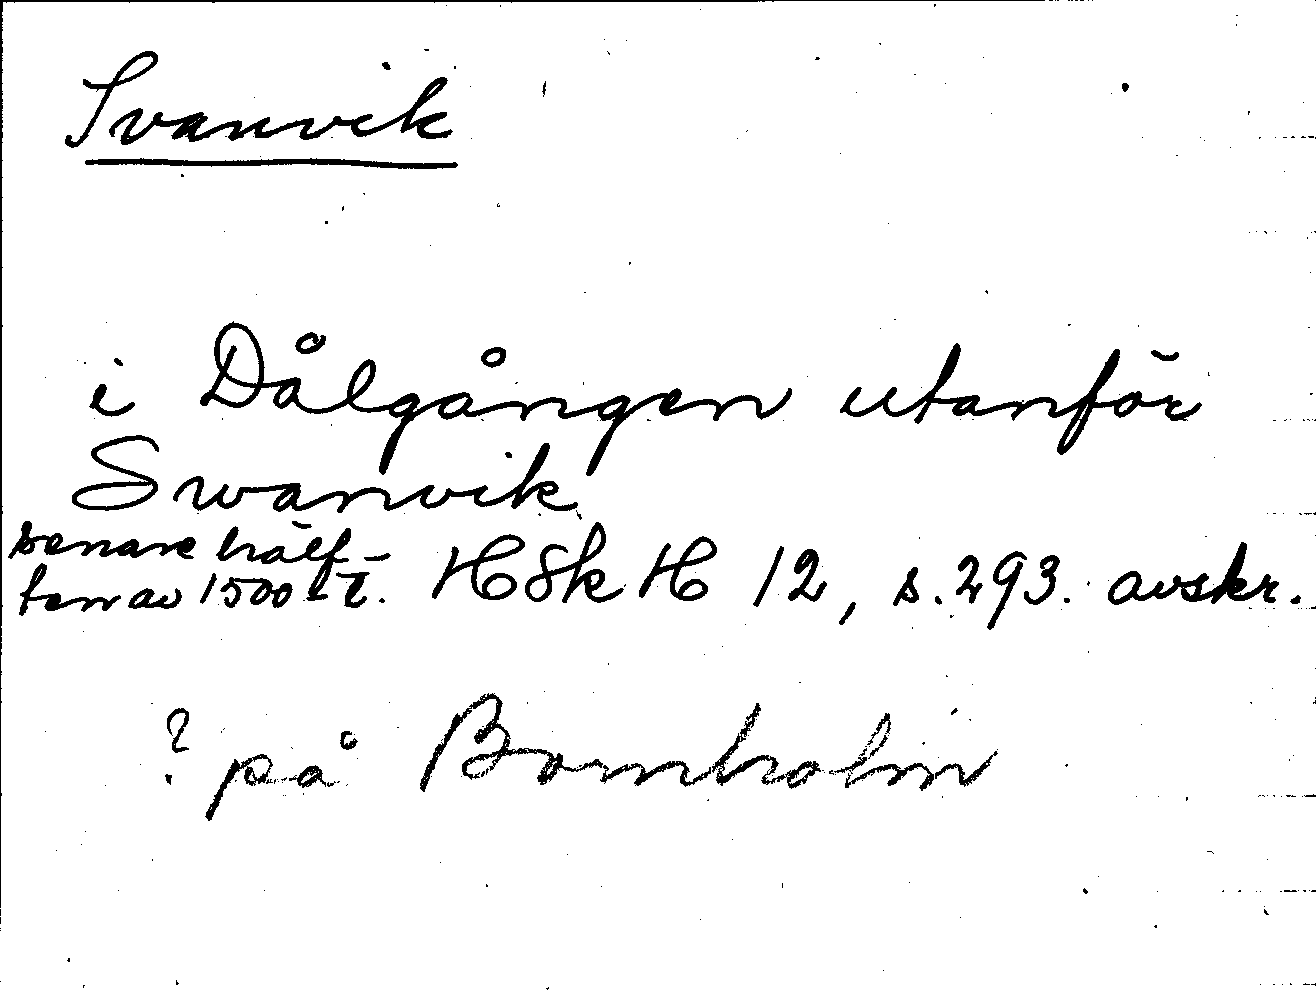 Svanvik
i Dålgången utanför
Swanvik
senare hälf-
ten av 1500-t. HSkH 12, s.293. avskr.
? på Bornholm